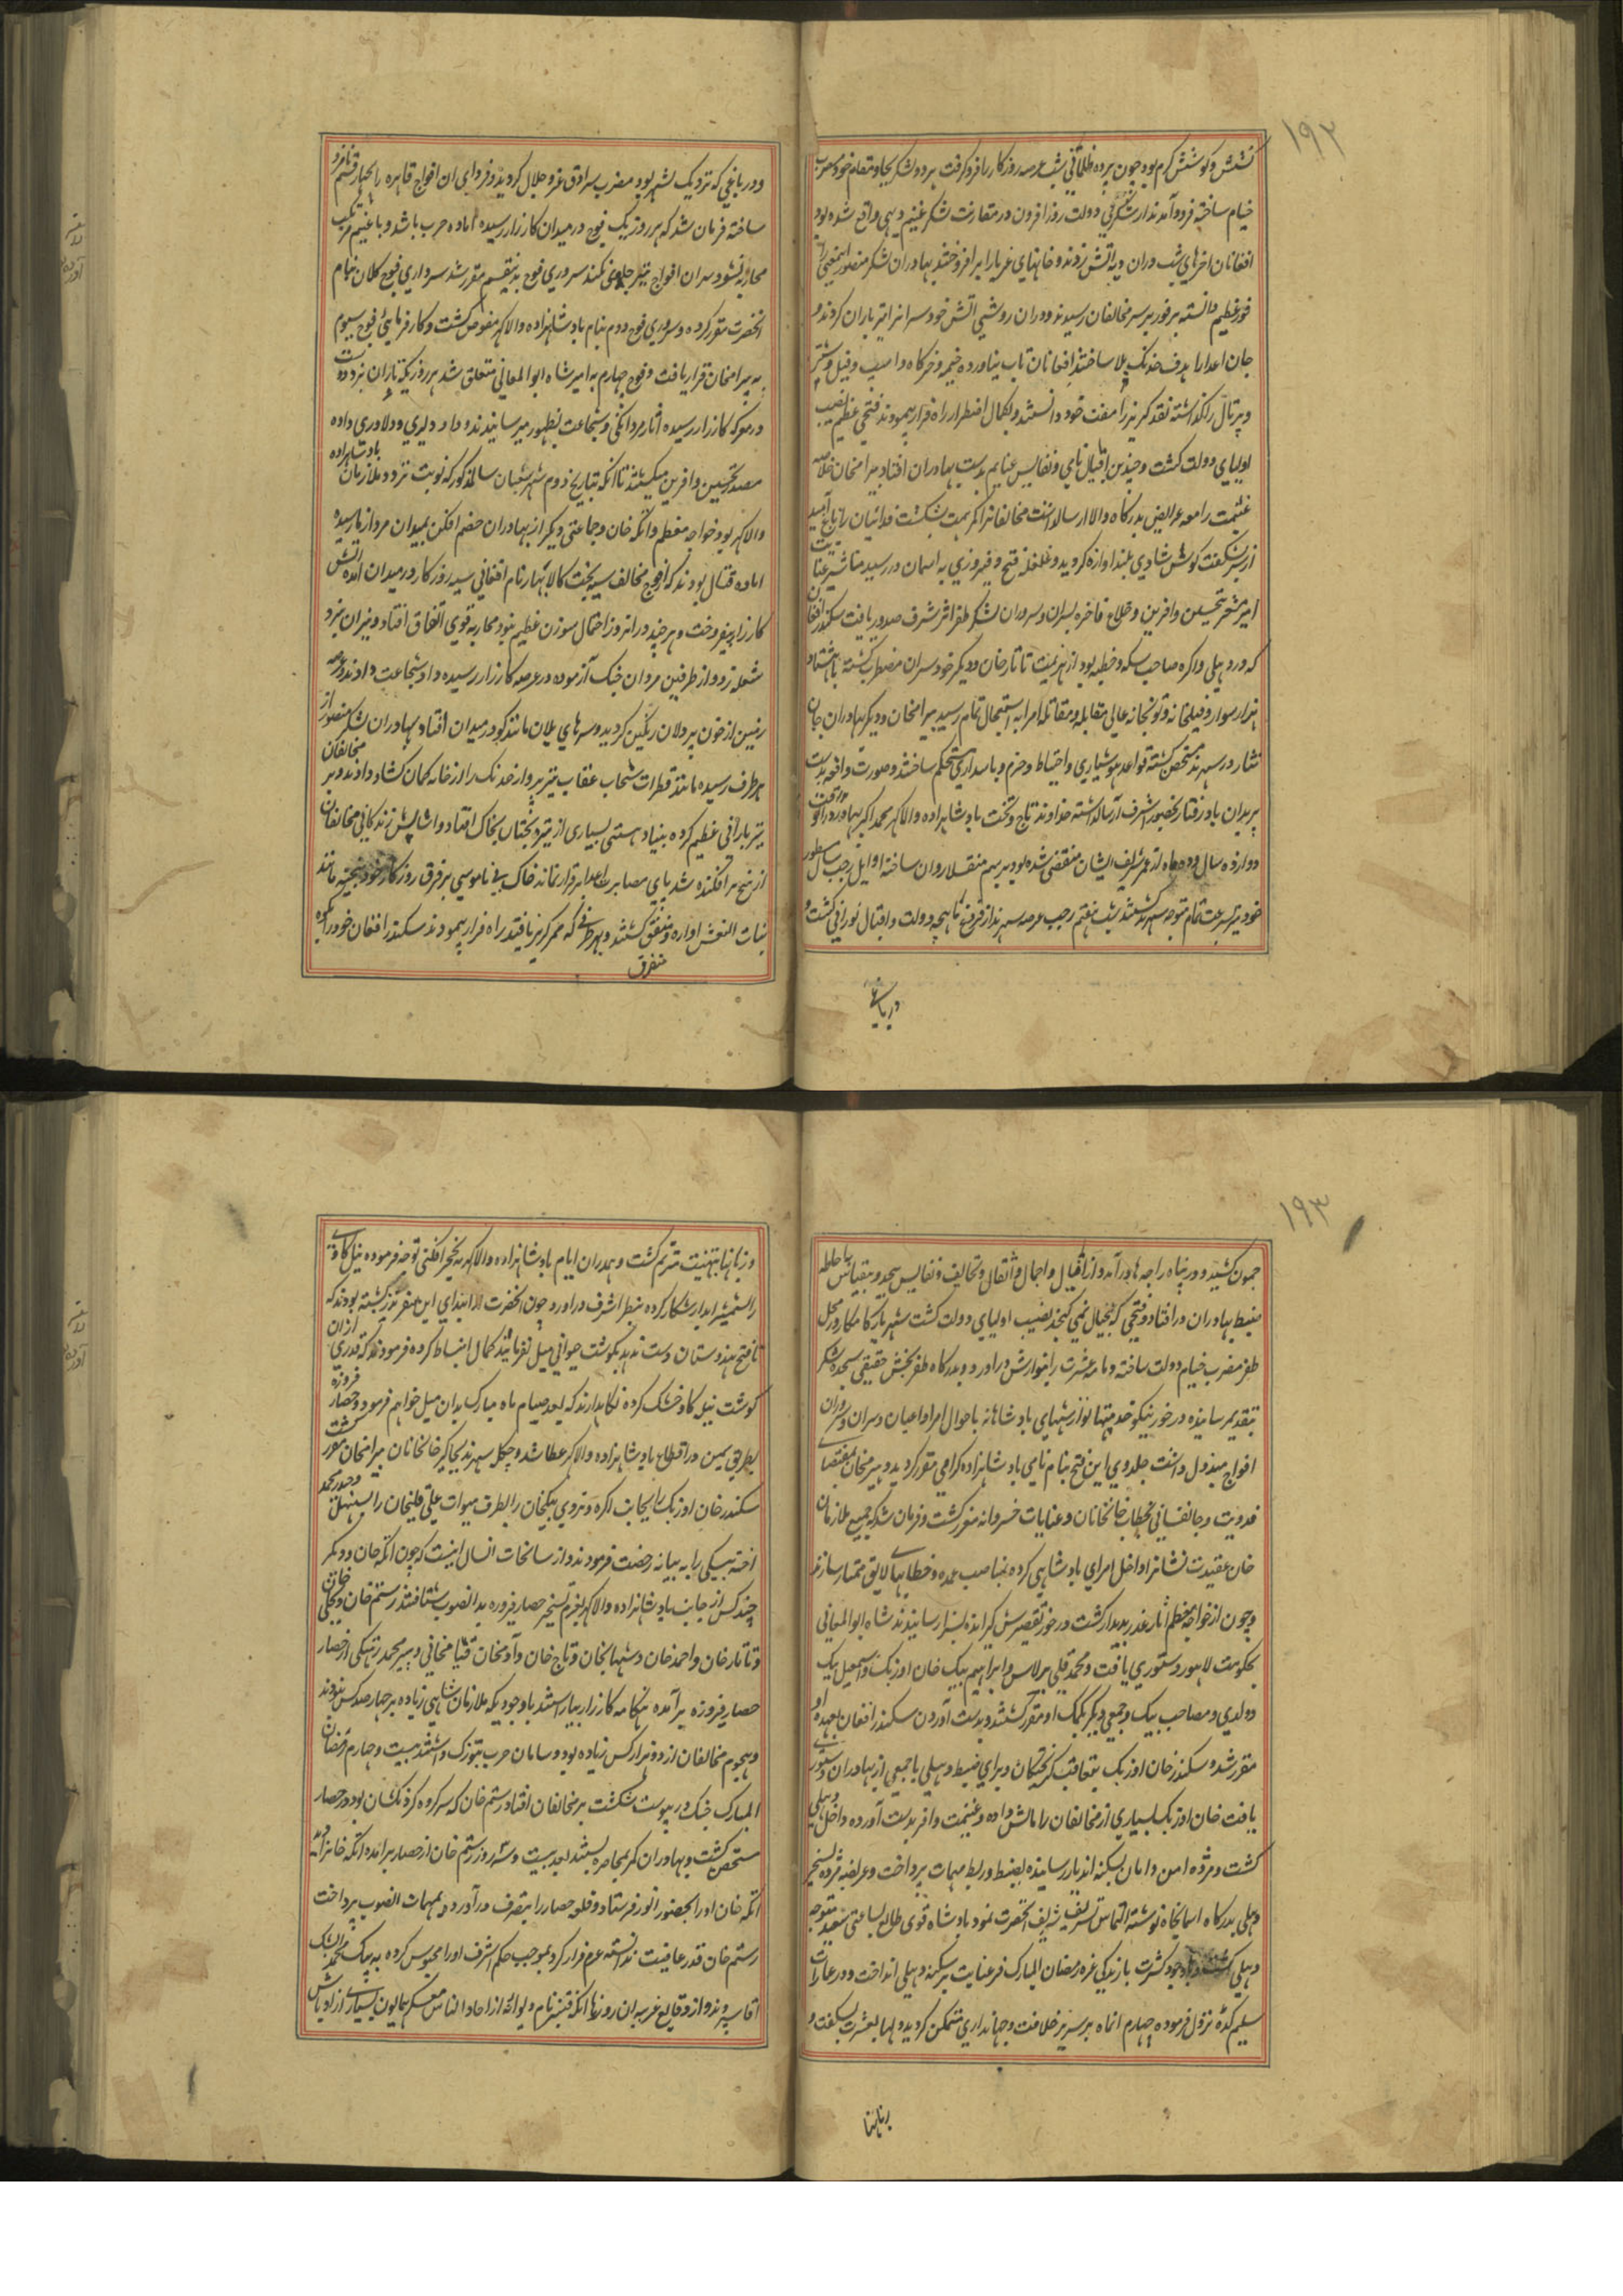 ١٩٢
کشش و کوشش کرم بود چون پرده ظلمانی شب عرصه روزکار را فرو کرفت هر دو لشکر بجا و مقام خود مضرب
خیام ساخته فرود آمدند از شکرفی دولت روز افزون در مقارنت لشکر غنیم دیهی واقع شده بود
افغانان اخرهای شب دران دیه اتش زدند و خانهای غربا را بر افروختند بهادران لشکر منصور اینمعنی را
فوز عظیم دانسته بر فور بر سر مخالفان رسیدند و دران روشنی اتش خود سرانرا تیر باران کردند و
جان اعدا را هدف خدنک بلا ساختند افغانان تاب نیاورده خیمه و خرکاه و اسپ و فیل و شتر
و پرتال را کذاشته نقد کریز را مفت خود دانستند و بکمال اضطرار راه فرار پیمودند فتحی عظیم نصیب
اولیای دولت کشت و چندین اقبال نامی و نفایس غنایم بدست بهادران افتاد بیرامخان خلاصه
غنیمت را معه عرایض بدرکاه والا ارسالداشت مخالفانرا کمر همت بشکست فدائیان را باغ امید
ازسر شکفت کوش شادی بلند اوازه کردید و غلغله فتح و فیروزی به اسمان در رسید مناشیر عنایت
امیز مشعر تحسین و افرین و خلاع فاخره بسران و سروران لشکر ظفر اثر شرف صدور یافت سکندر افغان
که در دهلی و اکره صاحب سکه و خطبه بود از هزیمت تاتار خان و دیکر خود سران مضطرب کشته با هشتاد
هزار سوار و فیلخانه و توپخانه عالی بمقابله و مقاتله امرا به استعجال تمام رسید بیرامخان و دیکر بهادران جان
نثار در سهرند متحصن کشته قواعد هوشیاری و احتیاط و حزم و پاسداری مستحکم ساختند و صورت واقعه بدست
بریدان باد رفتار بحضور اشرف ارسالداشته خداوند تاج و تخت بادشاهزاده والا کهر محمد اکبر بهادر را که درانوقت
دوازده سال و ده ماه از عمر شریف ایشان منقضی شده بود برسم منقلا روان ساخته اوایل رجب سال مسطور
خود نیز بسرعت تمام متوجه سهرند کشتند شب هفتم رجب عرصه سهرند از فروغ ماهچه دولت و اقبال نورانی کشت و
در باغی
ودر باغی که نزدیک شهر بود مضرب سرادق عز و جلال کردید و فردای ان افواج قاهره را بچهار قسم نامزد
ساخته فرمان شد که هر روز یک فوج در میدان کارزار رسیده اماده حرب باشد و با غنیم مرتکب
محاربه نشود سران افواج تیز جلوی نکند سروری فوج بدینقسم مقرر شد سرداری فوج کلان بنام
انحضرت مقرر کرده و سروری فوج دوم بنام بادشاهزاده والا کهر مفوض کشت و کار فرمایی فوج سیوم
به بیرامخان قرار یافت و فوج چهارم به امیر شاه ابو المعالی متعلق شد هر روز یکه تازان نبرد دوست
در معرکه کارزار رسیده اثار مردانکی و شجاعت بظهور میرسانیدند و داد دلیری و دلاوری داده
مصدر تحسین و افرین میکشتند تا انکه بتاریخ دوم شهر شعبان سالمذکور که نوبت تردد ملازمان بادشاهزاده
والا کهر بود خواجه معظم و اتکه خان و جماعتی دیکر از بهادران خصم افکن بمیدان مردازما رسیده
اماده قتال بودند که از فوج مخالف سیه بخت کالا پهار نام افغانی سیه روزکار در میدان امده اتش
کارزار بیفروخت و هر چند در انروز احتمال سوزن عظیم نبود محاربه قوی اتفاق افتاد و نیران نبرد
شعله زد و از طرفین مردان جنک آزموده در عرصه کارزار رسیده داد شجاعت دادند و عرصه
زمین از خون پر دلان رنکین کردید و سرهای یلان مانند کو در میدان افتاد بهادران لشکر منصور از
هر طرف رسیده مانند قطرات سحاب عقاب تیز پرواز خدنک را از خانه کمان کشاد دادند و بر مخالفان
تیر بارانی عظیم کرده بنیاد هستی بسیاری از تیره بختان بخاک افتاد و اساس زندکانی مخالفان
از بیخ بر افکنده شد پای مصابرت اعدا بر قرار نمانده خاک بی ناموسی بر فرق روزکار خود بیخته مانند
بنات النعش اواره و متفرق کشتند و بهر طرفی که ممر کریز یافتند راه فرار پیمودند سکندر افغان خود را بکوه
متفرق
١٩٣
جمون کشید و در پناه راجه ها در آمد و از اقیال و احمال و اثقال و تحایف و نفایس بیحد و بیقیاس باحاطه
ضبط بهادران در افتاد و فتحی که بخیال نمی کنجد نصیب اولیای دولت کشت شهریار کامکار در محل
ظفر مضرب خیام دولت ساخته و نامه عشرت را بنوازش در اورد و بدرکاه ظفر بخش حقیقی سجده شکر
بتقدیم رسانیده در خور نیکو خدمتیها نوازشهای بادشاهانه باحوال امرا و اعیان و سران و سروران
افواج مبذول داشت جلدوی این فتح بنام نامی بادشاهزاده کرامی مقرر کردید و بیرمخان بمقتضای
فدویت و جانفشانی بخطاب خانخانان و عنایات خسروانه مفخر کشت و فرمان شد که جمیع ملازمان
خان عقیدت نشانرا داخل امرای بادشاهی کرده بمناصب عمده و خطابهای لایق ممتاز سازند
و چون از خواجه معظم اثار غدر پدیدار کشت در خور تقصیرش کیرانده بسزا رسانیدند شاه ابو المعالی
بحکومت لاهور دستوری یافت و محمد قلی برلاس و ابراهیم بیک خان اوزبک و اسمعیل بیک
دولدی و مصاحب بیک و جمعی دیکر بکمک او مقرر کشتند و بدست آوردن سکندر افغان بعهده او
مقرر شد و سکندر خان اوزبک بتعاقب کریختکان و برای ضبط دهلی با جمعی از بهادران دستوری
یافت خان اوزبک بسیاری از مخالفان را مالش داده و غنیمت وافر بدست آورده داخل دهلی
کشت و مژده امن و امان بسکنه اندیار رسانیده بضبط و ربط مهمات پرداخت و عریضه مژده تسخیر
دهلی بدرکاه اسمانجاه نوشته التماس تشریف شریف انحضرت نمود بادشاه قوی طالع بساعتی سعید متوجه
دهلی کشت و باوجود کثرت بارندکی غره رمضان المبارک ظل عنایت بر سکنه دهلی انداخت و در عمارات
سلیم کده نزول فرموده چهارم انماه بر سریر خلافت و جهانداری متمکن کردید و لها بعشرت بشکفت و
زبانها
وزبانها بتهنیت مترنم کشت و همدران ایام بادشاهزاده والا کهر به نخچیر افکنی توجه فرموده نیل کاوی
را بشمشیر ابدار شکار کرده بنظر اشرف در اورد چون انحضرت از ابتدای این سفر نذر کشته بودند که
تا فتح هندوستان دست ندهد بکوشت حیوانی میل نفرمایند کمال انبساط کرده فرمودند که قدری ازان
کوشت نیل کاو خشک کرده نکاهدارند که بعد صیام ماه مبارک بدان میل خواهم فرمود و حصار فروزه
بطریق یمین در اقطاع بادشاهزاده والا کهر عطا شد و چکله سهرند بجاکیر خانخانان بیرامخان مقرر کشت
سکندر خان اوزبک را بجانب اکره و تردی بیکخان را بطرف میوات علی قلیخان را بسنبهل و حیدر محمد
اخته بیکی را به بیانه رخصت فرمودند و از سانحات انسال اینست که چون اتکه خان و دیکر
چند کس از جانب بادشاهزاده والا کهر بعزم تسخیر حصار فیروزه بد انصوب شتافتند رستم خان و بجلی خان
و تاتار خان و احمد خان و شهبا بخان و تاج خان و آدمخان قیامخانی و پیر محمد رتهکی از حصار
حصار فیروزه بر آمده هنکامه کارزار بیاراستند باوجودیکه ملازمان شاهی زیاده بر چهار صد کس نبودند
و هجوم مخالفان از دو هزار کس زیاده بود و سامان حرب بتوزک داشتند بیست و چهارم رمضان
المبارک جنک در پیوست شکست بر مخالفان افتاد رستم خان که سرکروه کردنکشان بود در حصار
متحصن کشت و بهادران کمر بمحاصره بستند بعد بیست و سه روز رستم خان از حصار بر امده اتکه خانرا دید
اتکه خان او را بحضور انور فرستاد و قلعه حصار را بتصرف در آورد و بمهمات انصوب پرداخت
رستم خان قدر عافیت ندانسته عزم فرار کرد بموجب حکم اشرف اورا محبوس کرده به بیک محمد ایشک
آقا سپردند و از وقایع غریبه ان روزها انکه قنبر نام دیوانه از احاد الناس معسکر همایون بسیاری از اوباش